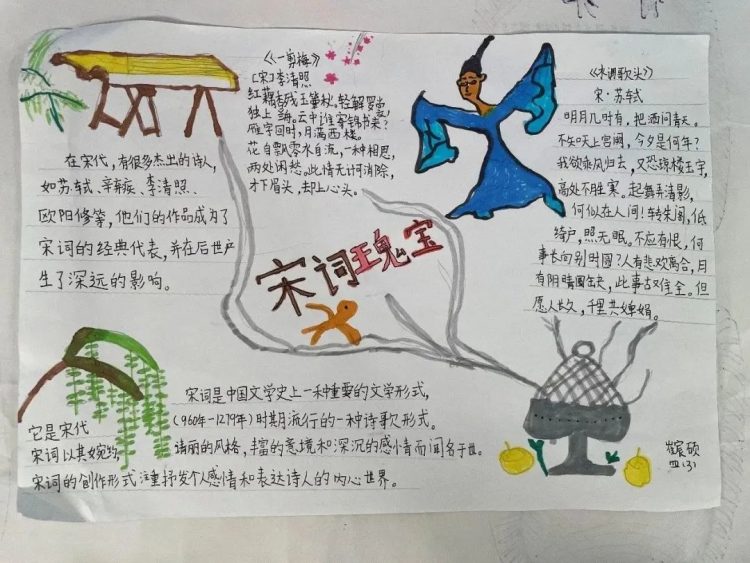 《一剪梅》
[宋]李清照
红藕香残玉簟秋,轻解罗裳,
独上兰舟。云中谁寄锦书来?
雁字回时,月满西楼。
花自飘零水自流,一种相思,
两处闲愁。此情无计可消除,
才下眉头,却上心头。
《水调歌头》
宋·苏轼
明月几时有,把酒问青天。
不知天上宫阙,今夕是何年?
我欲乘风归去,又恐琼楼玉宇,
高处不胜寒。起舞弄清影,
何似在人间!转朱阁,低
绮户,照无眠。不应有恨,何
事长向别时圆?人有悲欢离合,月
有阴晴圆缺,此事古难全。但
愿人长久,千里共婵娟。
在宋代,有很多杰出的诗人,
如苏轼、辛弃疾、李清照、
欧阳修等,他们的作品成为了
宋词的经典代表,并在后世产
生了深远的影响。
宋词瑰宝
宋词是中国文学史上一种重要的文学形式,
它是宋代(960年-1279年)时期流行的一种诗歌形式。
宋词以其婉约、清丽的风格,丰富的意境和深沉的感情而闻名于世。
宋词的创作形式注重抒发个人感情和表达诗人的内心世界。
四(3)